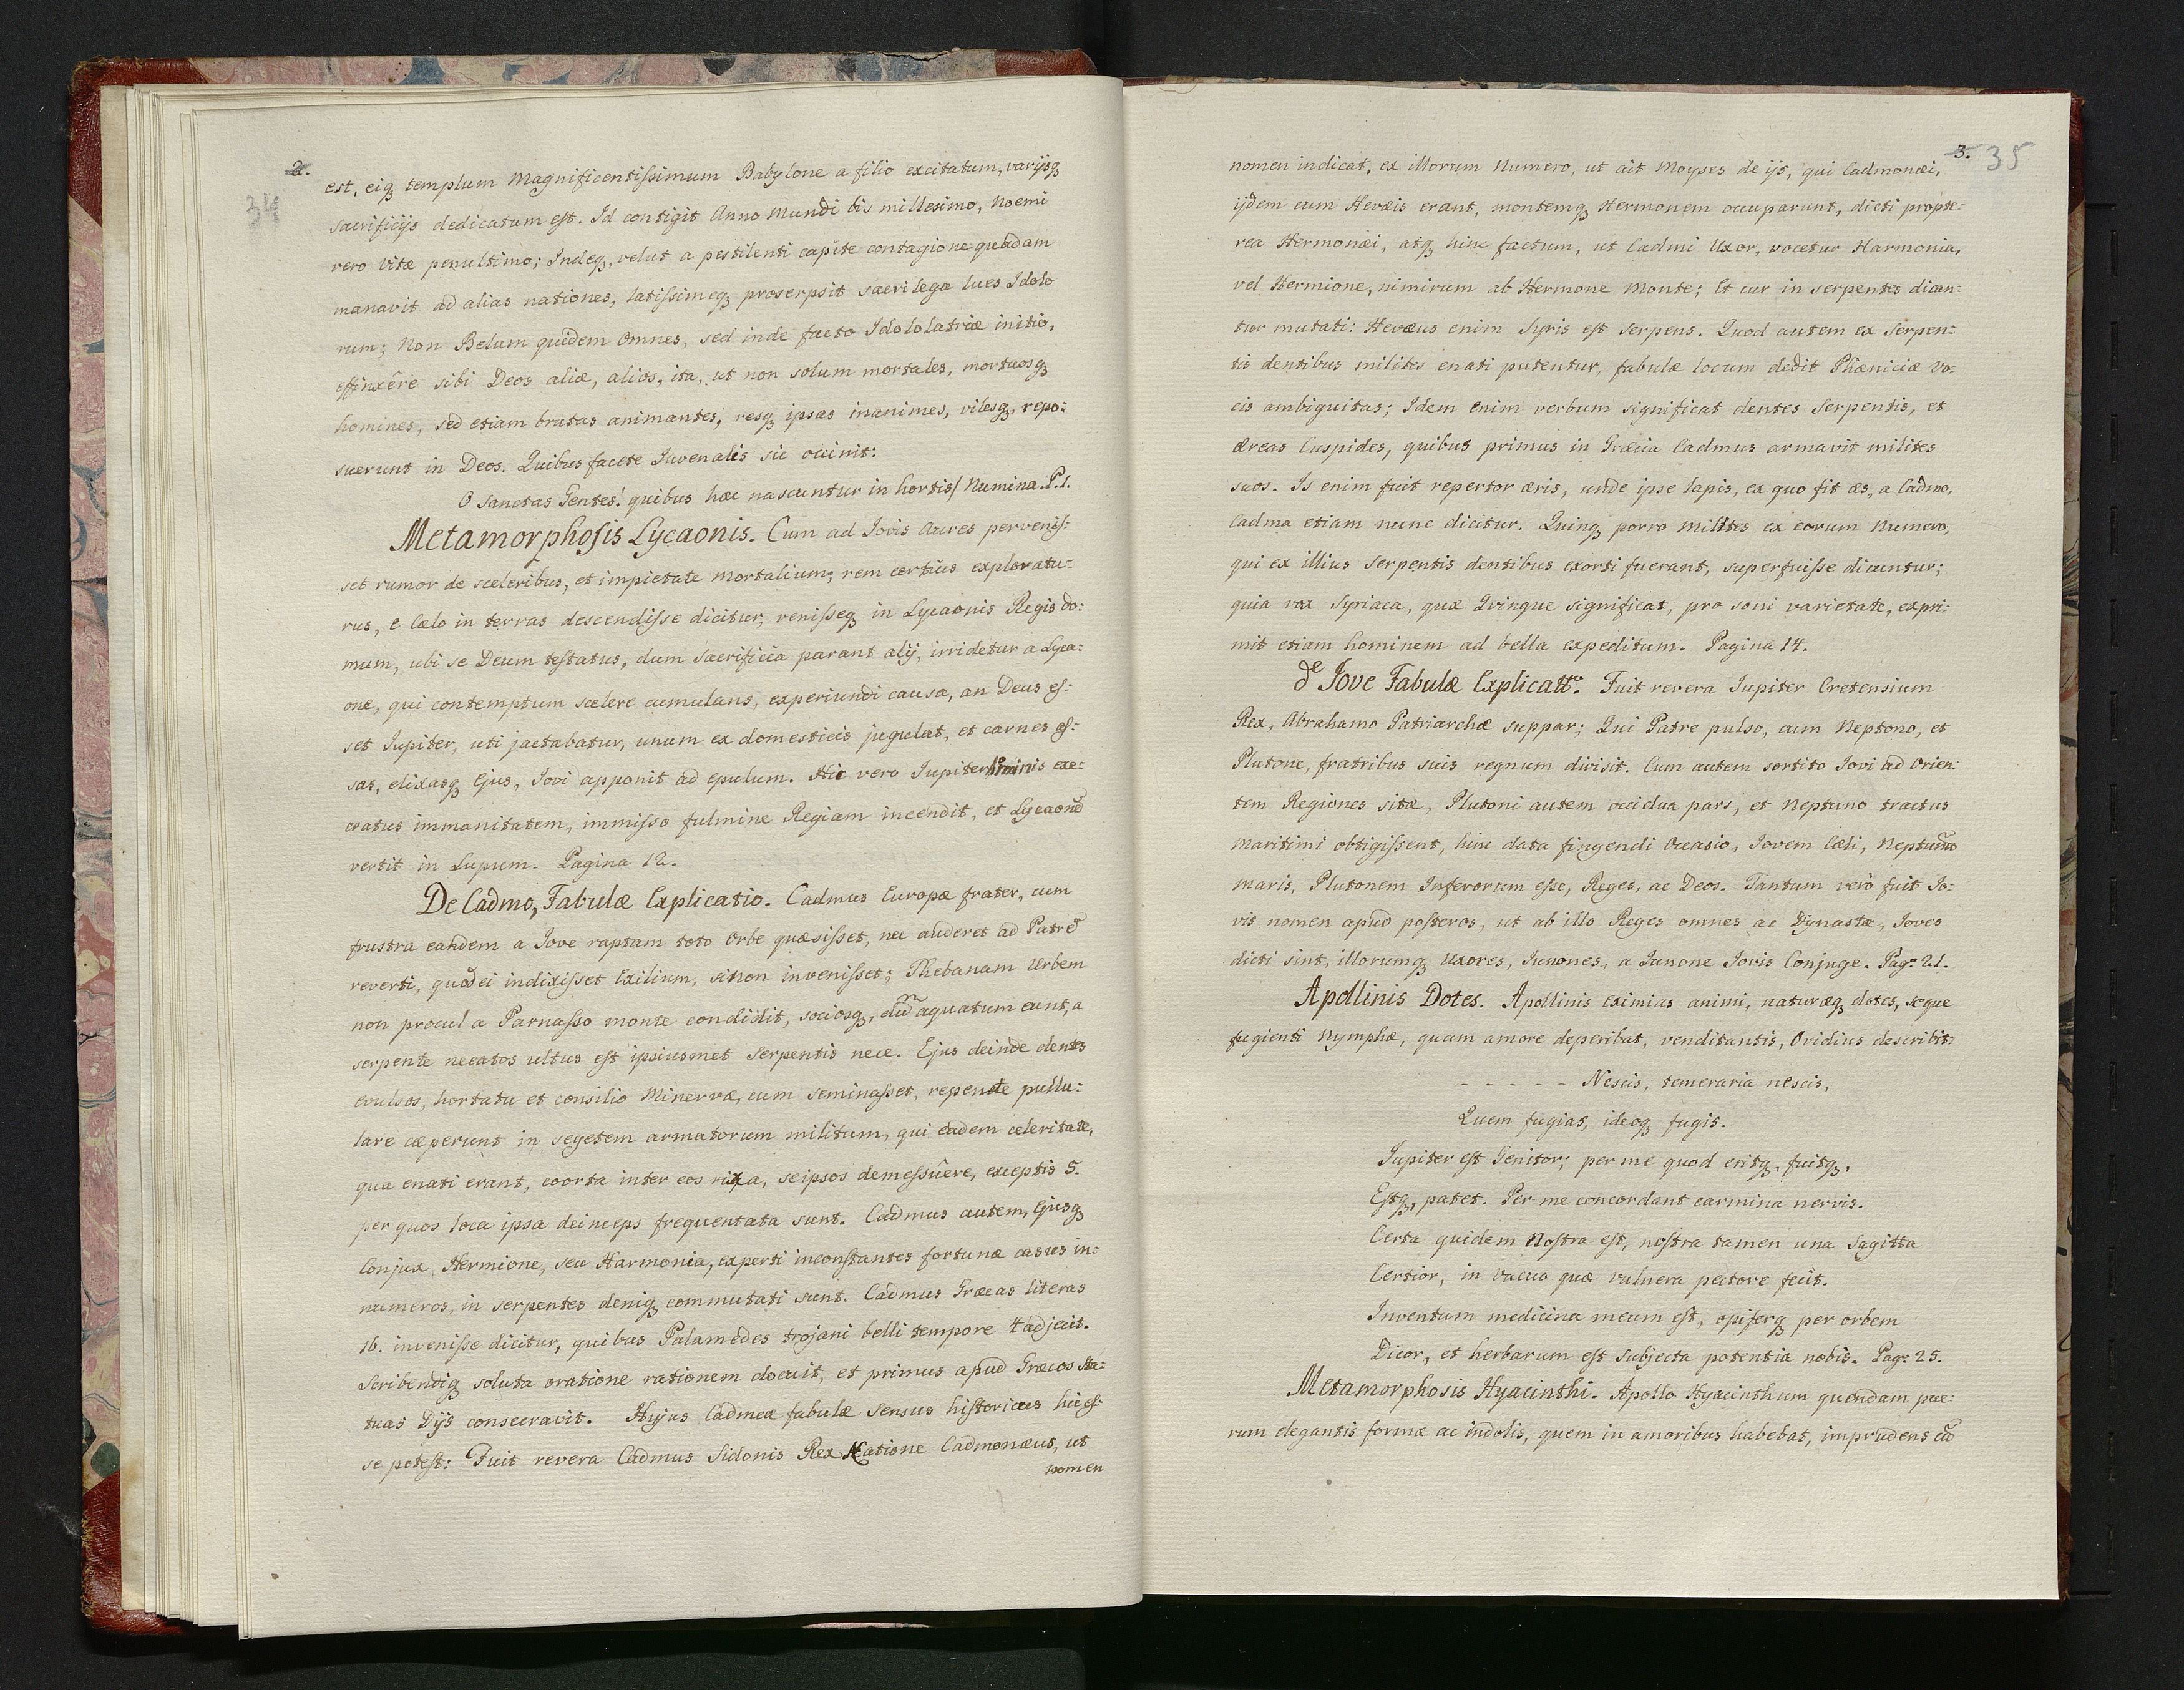 2.
34
est, eiq3 templum Magnificentiſsimum Babylone a filio excitatum, varijsq3
sacrificijs dedicatum est. Id contigit Anno Mundi bis millesimo, Noemi
vero Vitæ penultimo; Indeq3, velut a pestilenti capite contagione quadam
manavit ad alias nationes, latiſsimeq3 proserpsit sacrilega lues Idolo
rum; Non Belum quidem Omnes, sed inde facto Idololatriæ initio,
effinxêre sibi Deos aliæ, alios, ita, ut non solum mortales, mortuosq3
homines, sed etiam brutas animantes, resq3 ipsas inanimes, vilesq3, repo:
suerunt in Deos. Quibus facete Iuvenalis sic occinit:
O Sanctas Gentes! quibus hæc nascuntur in hortis/ Numina. P. 1.
Metamorphoſis Lycaonis. Cum ad Iovis Aures perveniſ:
set rumor de sceleribus, et impietate mortalium; rem certius exploratu:
rus, e Cælo in terras descendiſse dicitur, veniſseq3 in Lycaonis Regis do:
mum, ubi se Deum teſtatus, dum Sacrificia parant alij, irridetur a Lyca:
one, qui contemptum scelere cumulans, experiundi causa, an Deus eſ:
set Iupiter, uti jactabatur, unum ex domesticis jugulat, et carnes aſ:
sas, elixasq3 Ejus, Iovi apponit ad epulum. Hic vero Iupiter hominis exe:
cratus immanitatem, immiſso fulmine Regiam incendit, et Lycaonē
vertit in Lupum. Pagina 12.
De Cadmo, Fabulæ Explicatio. Cadmus Europæ frater, cum
frustra eandem a Iove raptam toto Orbe quæsiſset, nec auderet ad Patrē
reverti, quod ei indixiſset Exilium, si non inveniſset; Thebanam Urbem
non procul a Parnaſso monte condidit, sociosq3, dum aquatum eunt, a
serpente necatos ultus eſt ipsiusmet Serpentis nece. Ejus deinde dentes
evulsos, hortatu et consilio Minervæ, cum seminaſset, repente pullu:
lare cæperunt in segetem armatorum militum, qui eadem celeritate,
qua enati erant, coorta inter eos rixa, seipsos demeſsûere, exceptis 5.
per quos loca ipsa deinceps frequentata sunt. Cadmus autem, Ejusq3
Conjux Hermione, seu Harmonia, experti inconſtantes fortunæ casus in:
numeros, in serpentes deniq3 commutati sunt. Cadmus Græcas literas
16. inveniſse dicitur, quibus Palamedes trojani belli tempore 4 adjecit.
Scribendiq3 soluta oratione rationem docuit, et primus apud Græcos Sta:
tuas Dijs consecravit. Hujus Cadmeæ fabulæ Sensus hiſtoricus hic eſ:
se poteſt: Fuit revera Cadmus Sidonis Rex Natione Cadmonæus, ut
nomen
3.
35
nomen indicat, ex illorum Numero, ut ait Moyses de ijs, qui Cadmonæi,
ijdem cum Hevæis erant, montemq3 Hermonem occuparunt, dicti propte:
rea Hermonæi, atq3 hinc factum, ut Cadmi Uxor, vocetur Harmonia,
vel Hermione, nimirum ab Hermone Monte; Et cur in serpentes dican:
tur mutati: Hevæus enim Syris eſt Serpens. Quod autem ex Serpen:
tis dentibus milites enati putentur, fabulæ locum dedit Phæniciæ vo:
cis ambiguitas; Idem enim verbum significat dentes Serpentis, et
Æreas Cuspides, quibus primus in Græcia Cadmus armavit milites
suos. Is enim fuit repertor æris, unde ipse lapis, ex quo fit æs, a Cadmo,
Cadma etiam nunc dicitur. Quinq3 porro Milites ex eorum Numero,
qui ex illius Serpentis dentibus exorti fuerant, superfuiſse dicuntur;
quia vox Syriaca, quæ Quinque significat, pro soni varietate, expri:
mit etiam hominem ad bella expeditum. Pagina 14.
de Iove Fabulæ Explicattº. Fuit revera Iupiter Cretensium
Rex, Abrahamo Patriarchæ suppar; Qui Patre pulso, cum Neptono, et
Plutone, fratribus suis regnum divisit. Cum autem sortito Iovi ad Orien:
tem Regiones sitæ, Plutoni autem occidua pars, et Neptuno tractus
maritimi obtigiſsent, hinc data fingendi Occasio, Iovem Cæli, Neptunū
maris, Plutonem Inferorum eſse, Reges, ac Deos. Tantum verò fuit Io:
vis nomen apud poſteros, ut ab illo Reges omnes ac Dynastæ, Ioves
dicti sint, illorumq3 Uxores, Iunones, a Iunone Iovis Conjuge. Pagª 21.
Apollinis Dotes. Apollinis eximias animi, naturæq3 dotes, seque
fugienti Nymphæ, quam amore deperibat, venditantis, Ovidius describit:
- - - - - Nescis, temeraria nescis,
Quem fugias, ideoq3 fugis.
Iupiter eſt Genitor; per me quod eritq3, fuitq3,
Eſtq3, patet. Per me concordant carmina nervis.
Certa quidem Noſtra eſt, noſtra tamen una Sagitta
Certior, in Vacuo quæ vulnera pectore fecit.
Inventum medicina meum eſt, opiferq3 per orbem
Dicor, et herbarum eſt subjecta potentia nobis. Pagª 25.
Metamorphosis Hyacinthi. Apollo Hyacinthum quendam pue:
rum elegantis formæ ac indolis, quem in amoribus habebat, imprudens cū